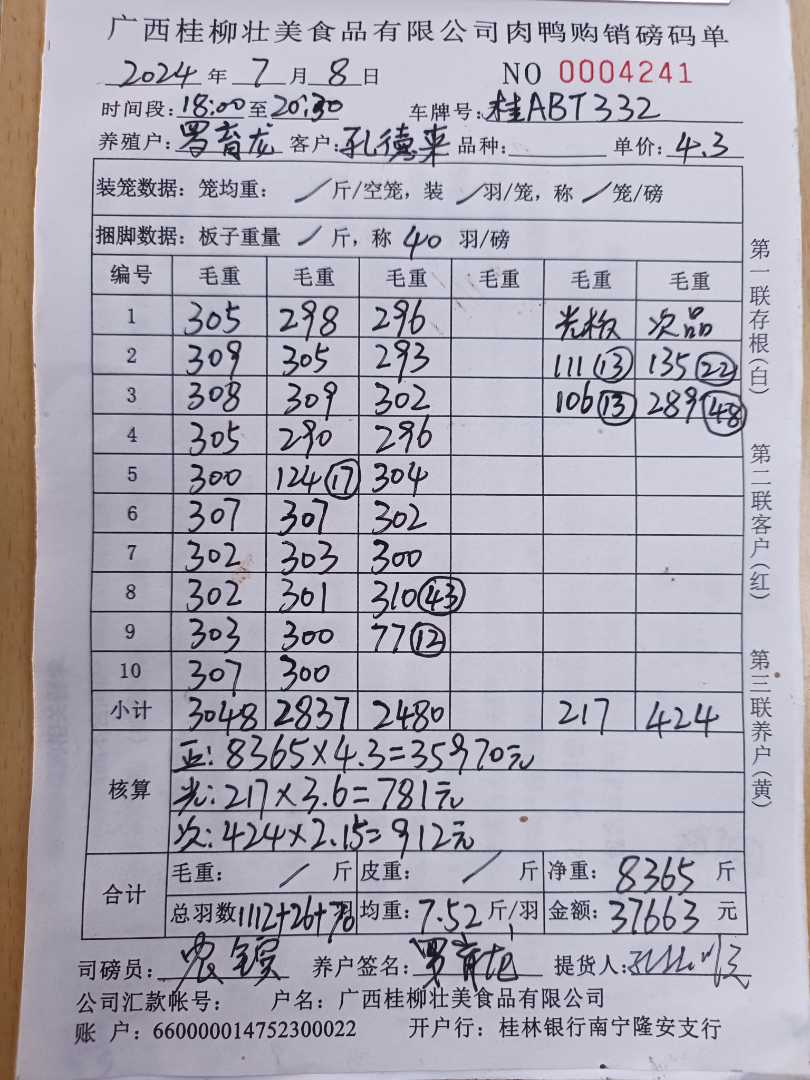 广西桂柳壮美食品有限公司肉鸭购销磅码单
2024 年 7 月 8 日 NO 0004241
时间段:18:00至20:30 车牌号:桂ABT332
养殖户:罗育龙 客户:孔德来 品种: 单价:4.3
装笼数据:笼均重: / 斤/空笼,装 / 羽/笼,称 / 笼/磅
捆脚数据:板子重量 / 斤,称 40 羽/磅
编号 毛重 毛重 毛重 毛重 毛重 毛重
1 305 298 296 光板 次品
2 309 305 293 111 13 135 22
3 308 309 302 106 13 289 48
4 305 290 296
5 300 124 17 304
6 307 307 302
7 302 303 300
8 302 301 310 43
9 303 300 77 12
10 307 300
小计 3048 2837 2480 217 424
核算
正:8365×4.3=35970元
光:217×3.6=781元
次:424×2.15=912元
合计
毛重: / 斤 皮重: / 斤 净重: 8365 斤
总羽数1112+26+70 均重:7.52斤/羽 金额:37663 元
司磅员: 养户签名:罗育龙 提货人:
公司汇款帐号: 户名:广西桂柳壮美食品有限公司
账 户:660000014752300022 开户行:桂林银行南宁隆安支行
第一联存根(白)
第二联客户(红)
第三联养户(黄)